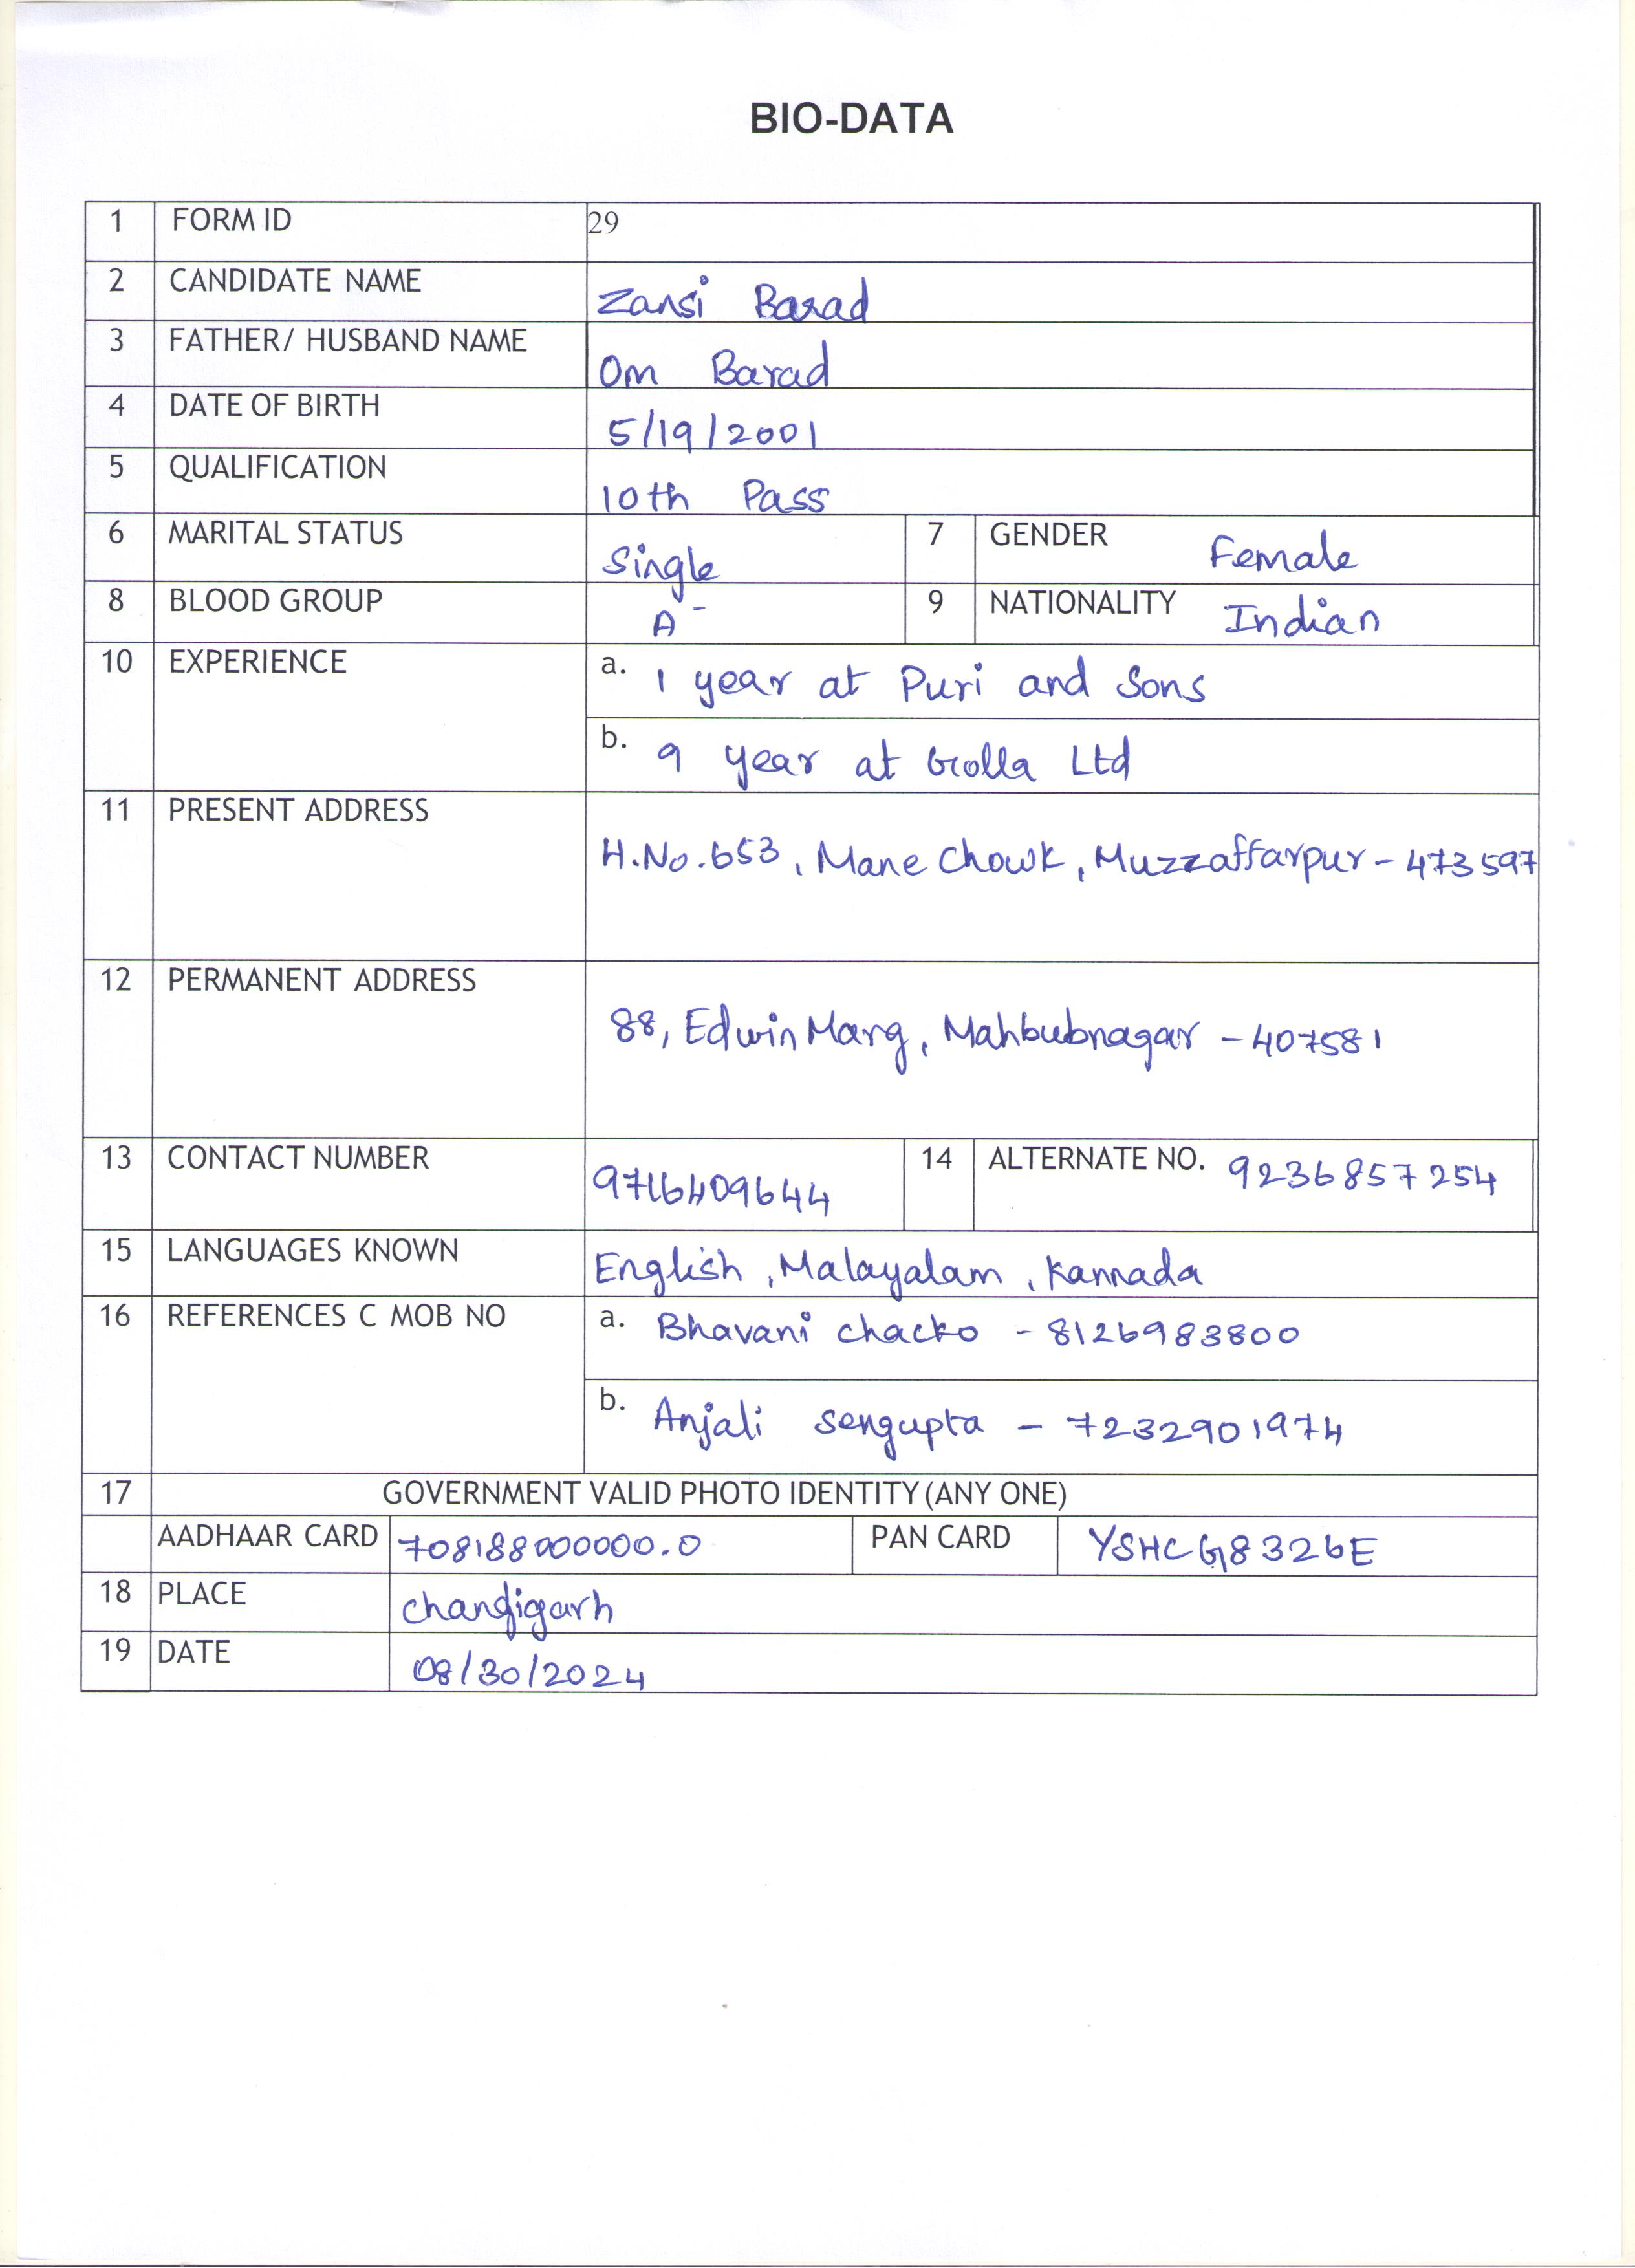 BIO-DATA
1 FORM ID 29
2 CANDIDATE NAME Zansi Barad
3 FATHER/ HUSBAND NAME Om Barad
4 DATE OF BIRTH 5/19/2001
5 QUALIFICATION 10th Pass
6 MARITAL STATUS Single 7 GENDER Female
8 BLOOD GROUP A- 9 NATIONALITY Indian
10 EXPERIENCE a. 1 year at Puri and Sons
b. 9 year at Golla Ltd
11 PRESENT ADDRESS
H.No.653, Mane Chowk, Muzzaffarpur - 473597
12 PERMANENT ADDRESS
88, Edwin Marg, Mahbubnagar - 407581
13 CONTACT NUMBER 9716409644 14 ALTERNATE NO. 9236857254
15 LANGUAGES KNOWN English, Malayalam, Kannada
16 REFERENCES C MOB NO a. Bhavani chacko - 8126983800
b. Anjali sengupta - 7232901974
17 GOVERNMENT VALID PHOTO IDENTITY (ANY ONE)
AADHAAR CARD 708188000000.0 PAN CARD YSHCG8326E
18 PLACE chandigarh
19 DATE 08/30/2024